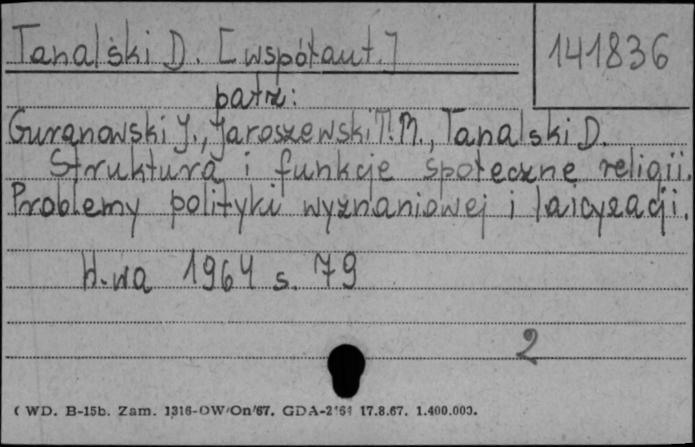 Tanalski D. [współaut.]
141836
patrz:
Guranowski J., Jaroszewski T.M., Tanalski D.
Struktura i funkcje społeczne religii.
Problemy polityki wyznaniowej i laicyzacji.
W.wa 1964 s. 79
2
( WD. B-15b. Zam. 1316-OW/On/67. GDA-2161 17.8.67. 1.400.000.